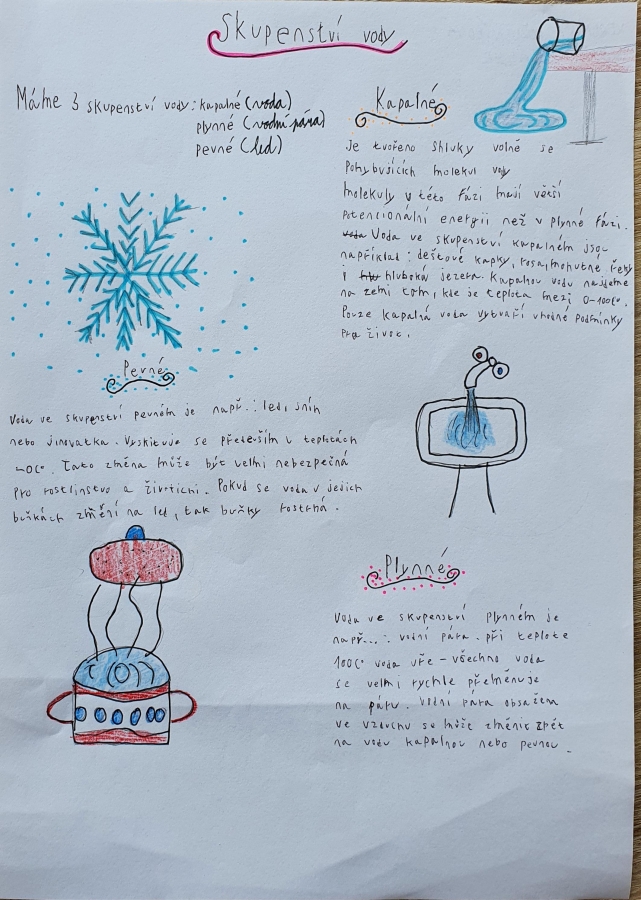 Skupenství vody
Máme 3 skupenství vody: kapalné (voda)
plynné (vodní pára)
pevné (led)
Kapalné
Je tvořeno shluky volně se
pohybujících molekul vody
molekuly v této fázi mají větší
potencionální energii než v plynné fázi.
Voda ve skupenství kapalném jsou
například: dešťové kapky, rosa, mohutné řeky
i hluboká jezera. Kapalnou vodu najdeme
na zemi tam, kde je teplota mezi 0-100C°.
Pouze kapalná voda vytváří vhodné podmínky
pro život.
Pevné
Voda ve skupenství pevném je např.: led, sníh
nebo jinovatka. Vyskituje se především v teplotách
0C°. Tato změna může být velmi nebezpečná
pro rostlinstvo a živočichi. Pokud se voda v jejich
buňkách změní na led, tak buňky roztrhá.
Plynné
Voda ve skupenství plynném je
např...: vodní pára. při teplotě
100C° voda vře - všechno voda
se velmi rychle přeměňuje
na páru. Vodní pára obsažena
ve vzduchu se může změnit zpět
na vodu kapalnou nebo pevnou.